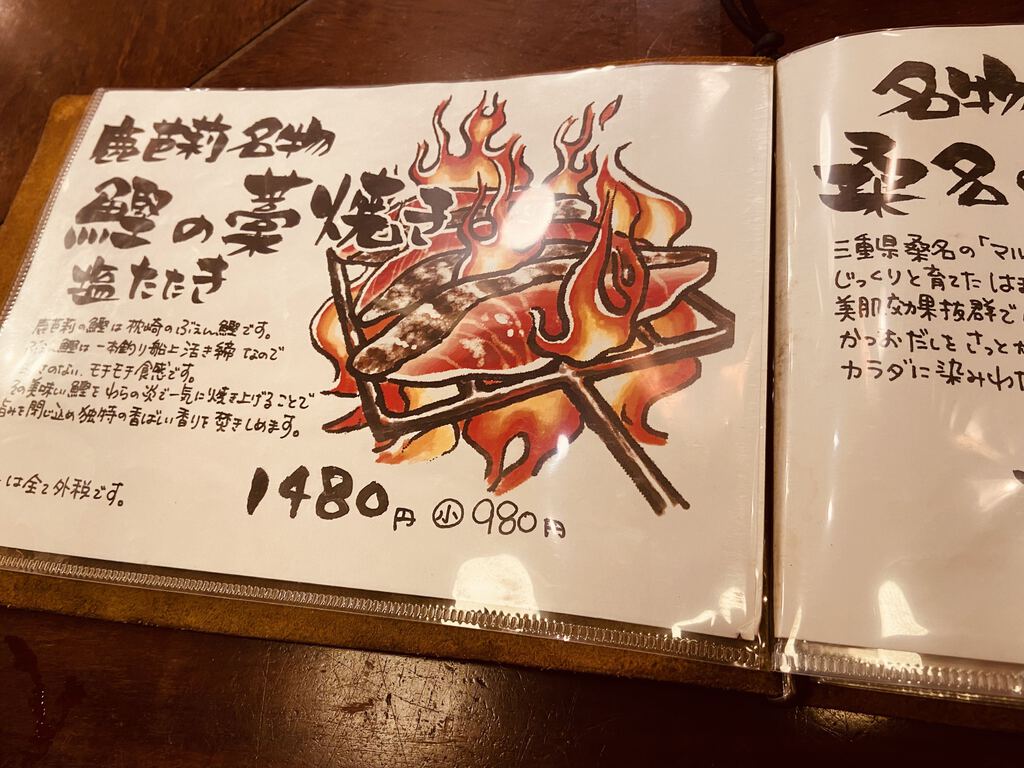 鹿芭莉名物
鰹の藁焼き
塩たたき
鹿芭莉の鰹は枕崎のぶえん鰹です。
鰹は一本釣り船上活き締なので
のない、モチモチ食感です。
の美味しい鰹をわらの炎で一気に焼き上げることで
旨みを閉じ込め独特の香ばしい香りを焚きしめます。
は全て外税です。
1480円 小980円
名物
桑名の
三重県桑名の「マル
じっくりと育てたはま
美肌効果抜群で
かつおだしをさっと
カラダに染みわた